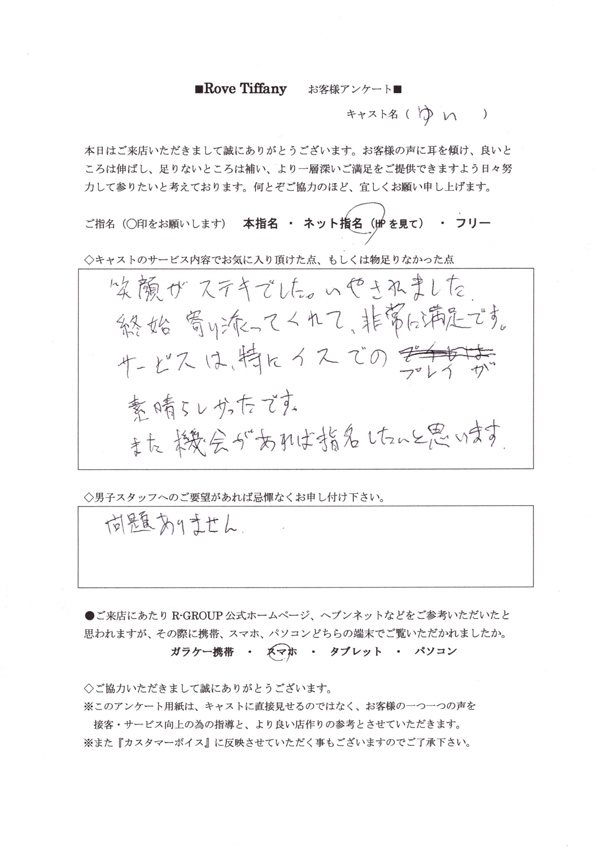 ■Rove Tiffany　お客様アンケート■
キャスト名（ ゆい ）
本日はご来店いただきまして誠にありがとうございます。お客様の声に耳を傾け、良いと
ころは伸ばし、足りないところは補い、より一層深いご満足をご提供できますよう日々努
力して参りたいと考えております。何とぞご協力のほど、宜しくお願い申し上げます。
ご指名（〇印をお願いします）　本指名 ・ ネット指名（HPを見て） ・ フリー
◇キャストのサービス内容でお気に入り頂けた点、もしくは物足りなかった点
笑顔がステキでした。いやされました.
終始寄り添ってくれて、非常に満足です。
サービスは、特にイスでの
プレイが
素晴らしかったです。
また機会があれば指名したいと思います.
◇男子スタッフへのご要望があれば忌憚なくお申し付け下さい。
問題ありません.
●ご来店にあたり R-GROUP 公式ホームページ、ヘブンネットなどをご参考いただいたと
思われますが、その際に携帯、スマホ、パソコンどちらの端末でご覧いただかれましたか。
ガラケー携帯　・　スマホ　・　タブレット　・　パソコン
◇ご協力いただきまして誠にありがとうございます。
※このアンケート用紙は、キャストに直接見せるのではなく、お客様の一つ一つの声を
接客・サービス向上の為の指導と、より良い店作りの参考とさせていただきます。
※また『カスタマーボイス』に反映させていただく事もございますのでご了承下さい。